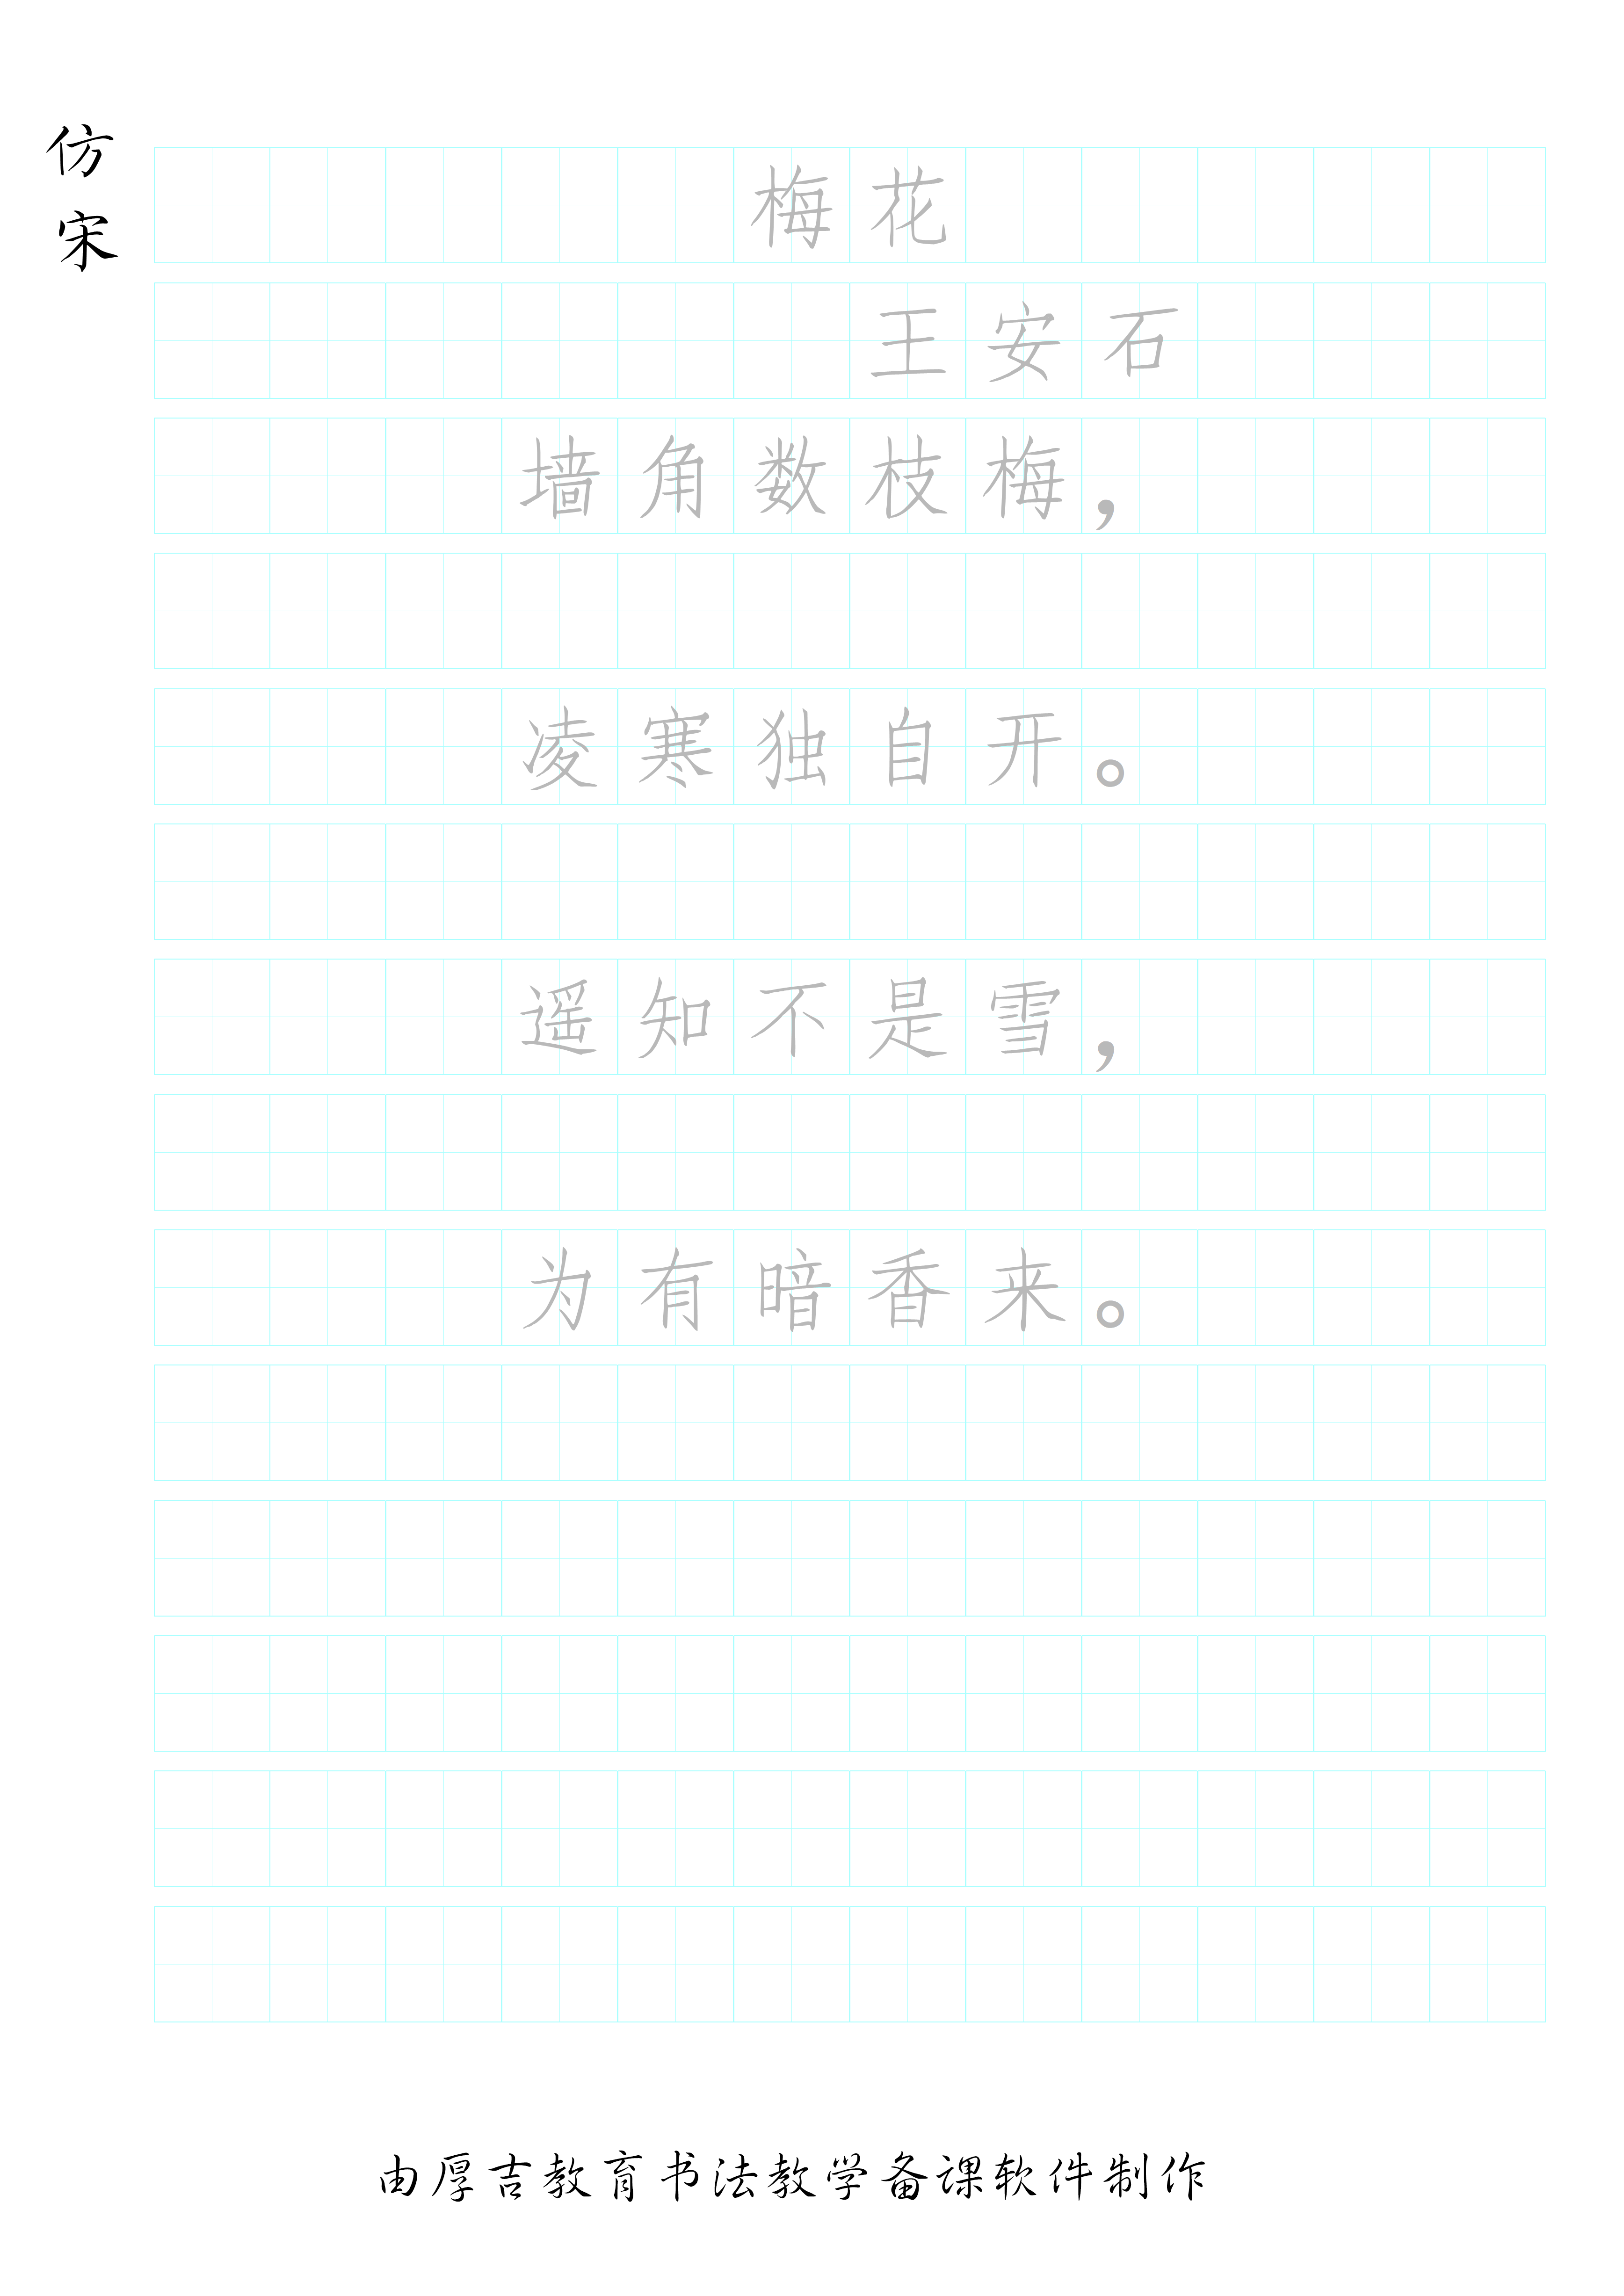 仿宋
梅花
王安石
墙角数枝梅，
凌寒独自开。
遥知不是雪，
为有暗香来。
由厚吉教育书法教学备课软件制作